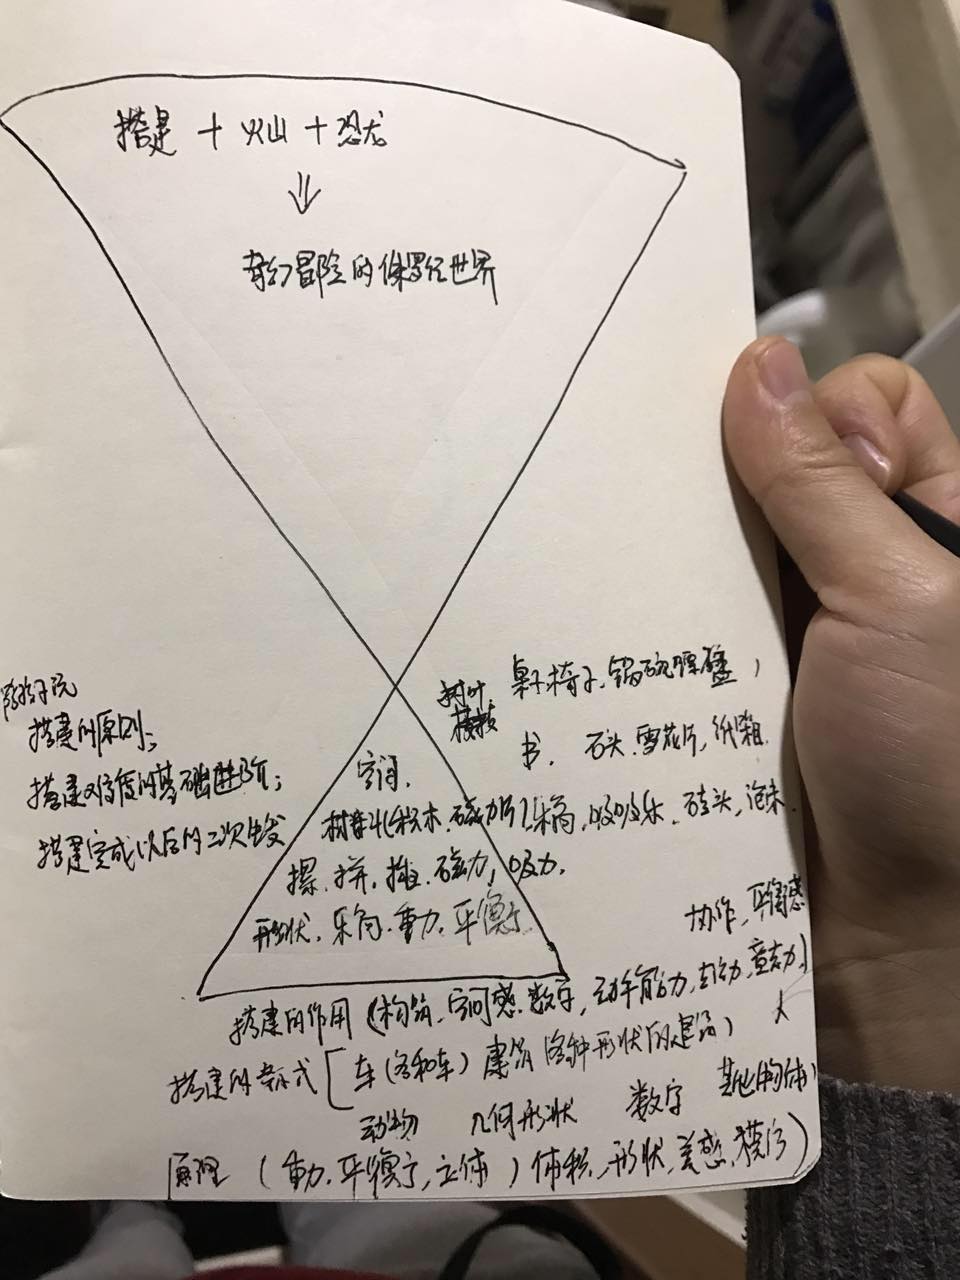 搭建 + 火山 + 恐龙
⇓
奇幻冒险的侏罗纪世界
搭建的原则;
搭建难度的基础进阶;
搭建完成以后的二次生发
树叶
桌子椅子、锅碗瓢盘,
书、石头、雪花片,纸箱.
空间.
(积木、磁力片)、吸吸乐、石头,泡沫.
拼、磁力,吸力.
形状、重力、平衡
协作,平衡感
搭建的作用(构筑、空间感、数字,动手能力,意志力)
搭建的[车(各种车)建筑(各种形状的建筑)
动物 几何形状 数字 其他物体
原理(重力,平衡,立体)体积,形状,美感,模仿)